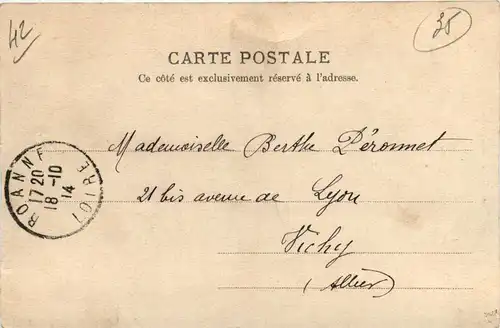 42
35
CARTE POSTALE
Ce côté est exclusivement réservé à l'adresse.
Mademoiselle Berthe Péronnet
21 bis avenue de Lyon
Vichy
(Allier)
ROANNE
17 20
18 - 10
14
LOIRE